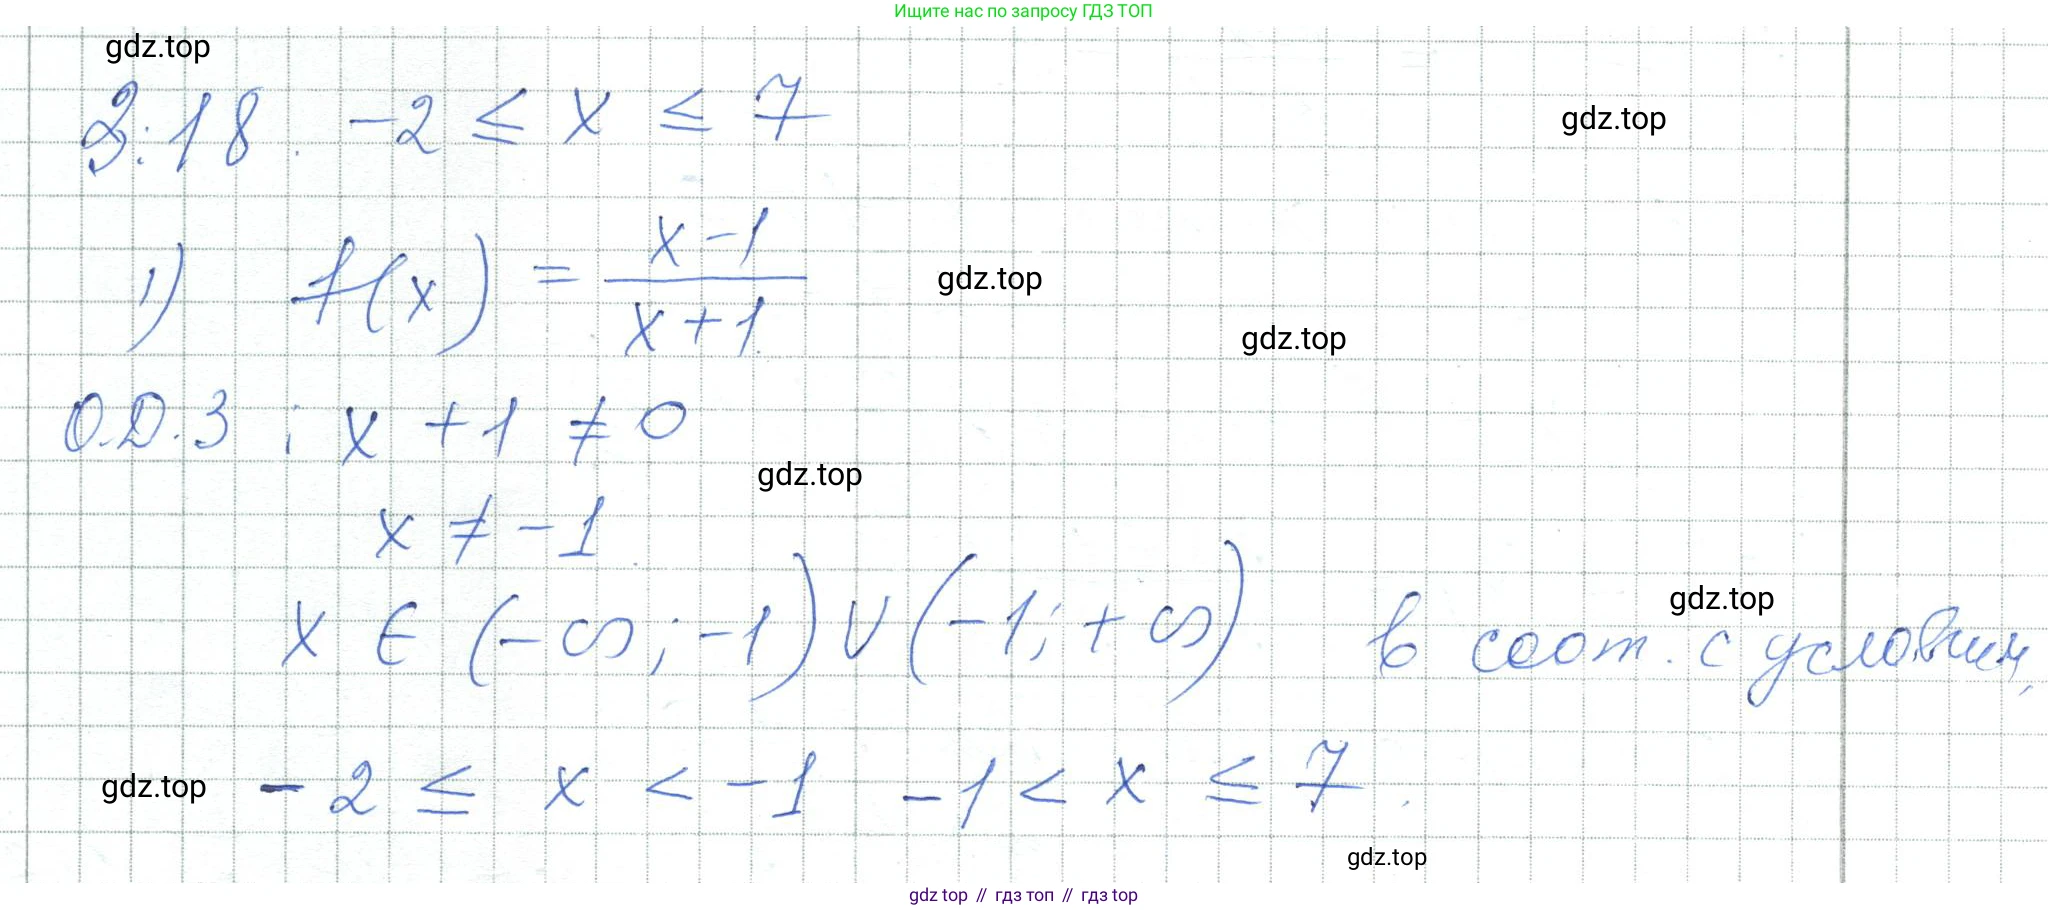 Ищите нас по запросу ГДЗ ТОП
gdz.top
3.18. -2 ≤ x ≤ 7
gdz.top
1) f(x) = (x-1)/(x+1)
gdz.top
gdz.top
О.Д.З : x + 1 ≠ 0
gdz.top
x ≠ -1
x ∈ (-∞; -1) ∪ (-1; +∞) в соот. с условии,
gdz.top
gdz.top
-2 ≤ x < -1 -1 < x ≤ 7.
gdz.top
gdz top // гдз топ // гдз top